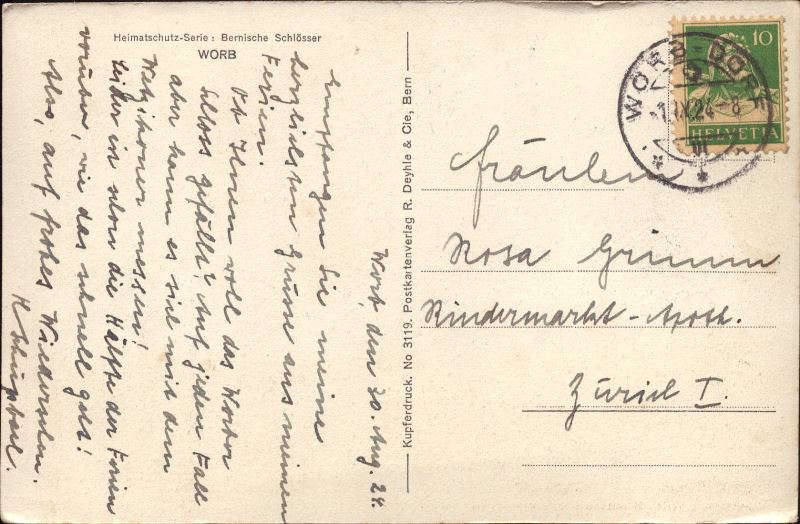 Heimatschutz-Serie: Bernische Schlösser
WORB
Worb, den 30. Aug. 24.
Empfangen Sie meine
herzlichsten Grüsse aus meinen
Ferien.
Ob Ihnen wohl das Worber
Schloss gefällt? Auf jeden Fall
aber kann es sich mit dem
Witzi messen!
Leider ist schon die Hälfte der Ferien
vorüber, wie das schnell geht!
Also, auf frohes Wiedersehn.
H.
Kupferdruck. No 3119. Postkartenverlag R. Deyhle & Cie, Bern
WORB-DORF
1.IX.24-8
VI
10
HELVETIA
Fräulein
Rosa Grimm
Rindermarkt-Apoth.
Zürich I.